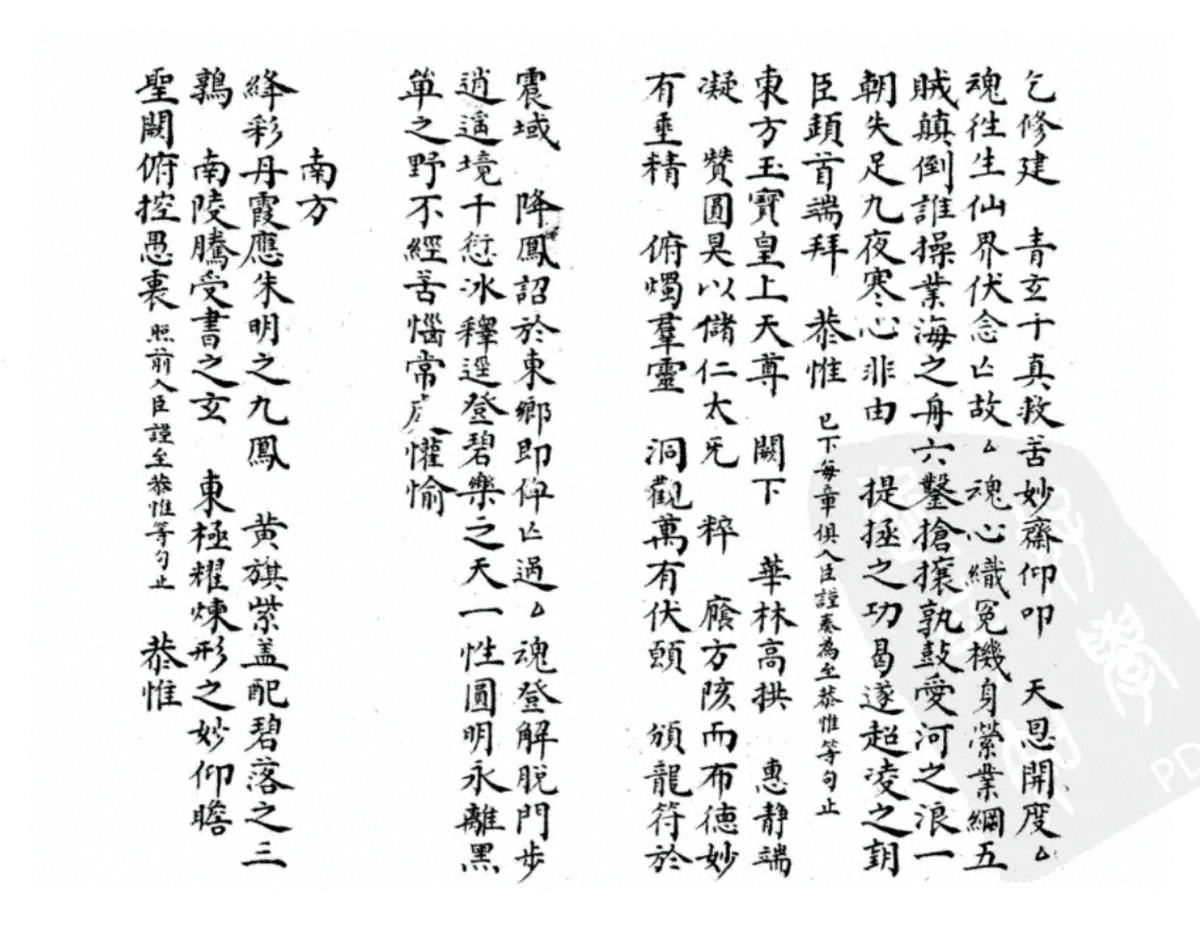 乞修建　青玄十真救苦妙齋仰叩　天恩開度厶
魂徃生仙界伏念亾故厶魂心織冤機身縈業綱五
賊顛倒誰操業海之舟六鑿搶攘孰鼓愛河之浪一
朝失足九夜寒心非由　提拯之功曷遂超凌之
臣頓首端拜　恭惟　已下每章俱入臣謹奏為至恭惟等句止
東方玉寳皇上天尊　闕下　華林高拱　惠静端
凝　贊圓昊以儲仁太旡　粹　應方陔而布德妙
有垂精　俯燭羣靈　洞觀萬有伏願　頒龍符於
震域　降鳳詔於東鄉即仰亾過厶魂登解脱門步
逍遥境千愆冰釋逕登碧樂之天一性圓明永離黑
箄之野不經苦惱常　懽愉
南方
絳彩丹霞應朱明之九鳳　黄旗紫盖配碧落之三
鶉　南陵騰受書之玄　東極耀煉形之妙仰瞻
聖闕俯控愚裏　照前入臣謹至恭惟等句止　恭惟
PD